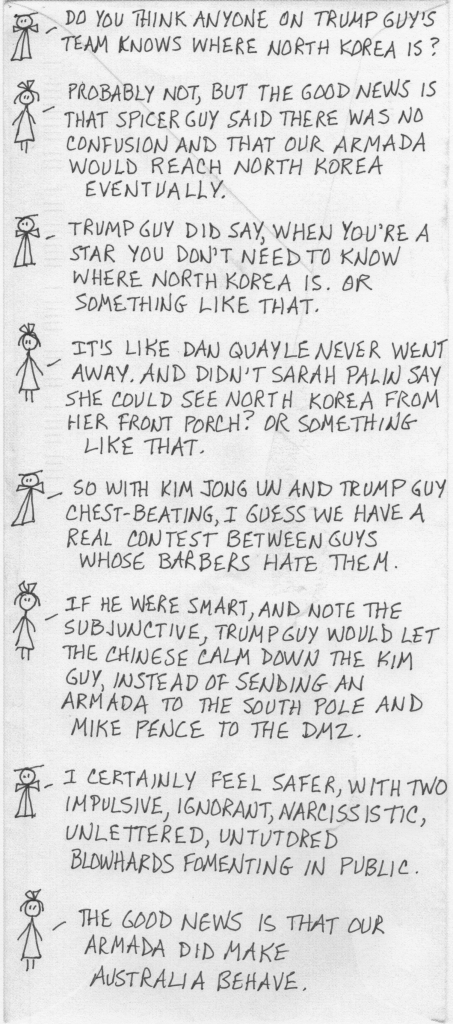 DO YOU THINK ANYONE ON TRUMP GUY'S
TEAM KNOWS WHERE NORTH KOREA IS?
PROBABLY NOT, BUT THE GOOD NEWS IS
THAT SPICER GUY SAID THERE WAS NO
CONFUSION AND THAT OUR ARMADA
WOULD REACH NORTH KOREA
EVENTUALLY.
TRUMP GUY DID SAY, WHEN YOU'RE A
STAR YOU DON'T NEED TO KNOW
WHERE NORTH KOREA IS. OR
SOMETHING LIKE THAT.
IT'S LIKE DAN QUAYLE NEVER WENT
AWAY. AND DIDN'T SARAH PALIN SAY
SHE COULD SEE NORTH KOREA FROM
HER FRONT PORCH? OR SOMETHING
LIKE THAT.
SO WITH KIM JONG UN AND TRUMP GUY
CHEST-BEATING, I GUESS WE HAVE A
REAL CONTEST BETWEEN GUYS
WHOSE BARBERS HATE THEM.
IF HE WERE SMART, AND NOTE THE
SUBJUNCTIVE, TRUMP GUY WOULD LET
THE CHINESE CALM DOWN THE KIM
GUY, INSTEAD OF SENDING AN
ARMADA TO THE SOUTH POLE AND
MIKE PENCE TO THE DMZ.
I CERTAINLY FEEL SAFER, WITH TWO
IMPULSIVE, IGNORANT, NARCISSISTIC,
UNLETTERED, UNTUTORED
BLOWHARDS FOMENTING IN PUBLIC.
THE GOOD NEWS IS THAT OUR
ARMADA DID MAKE
AUSTRALIA BEHAVE.